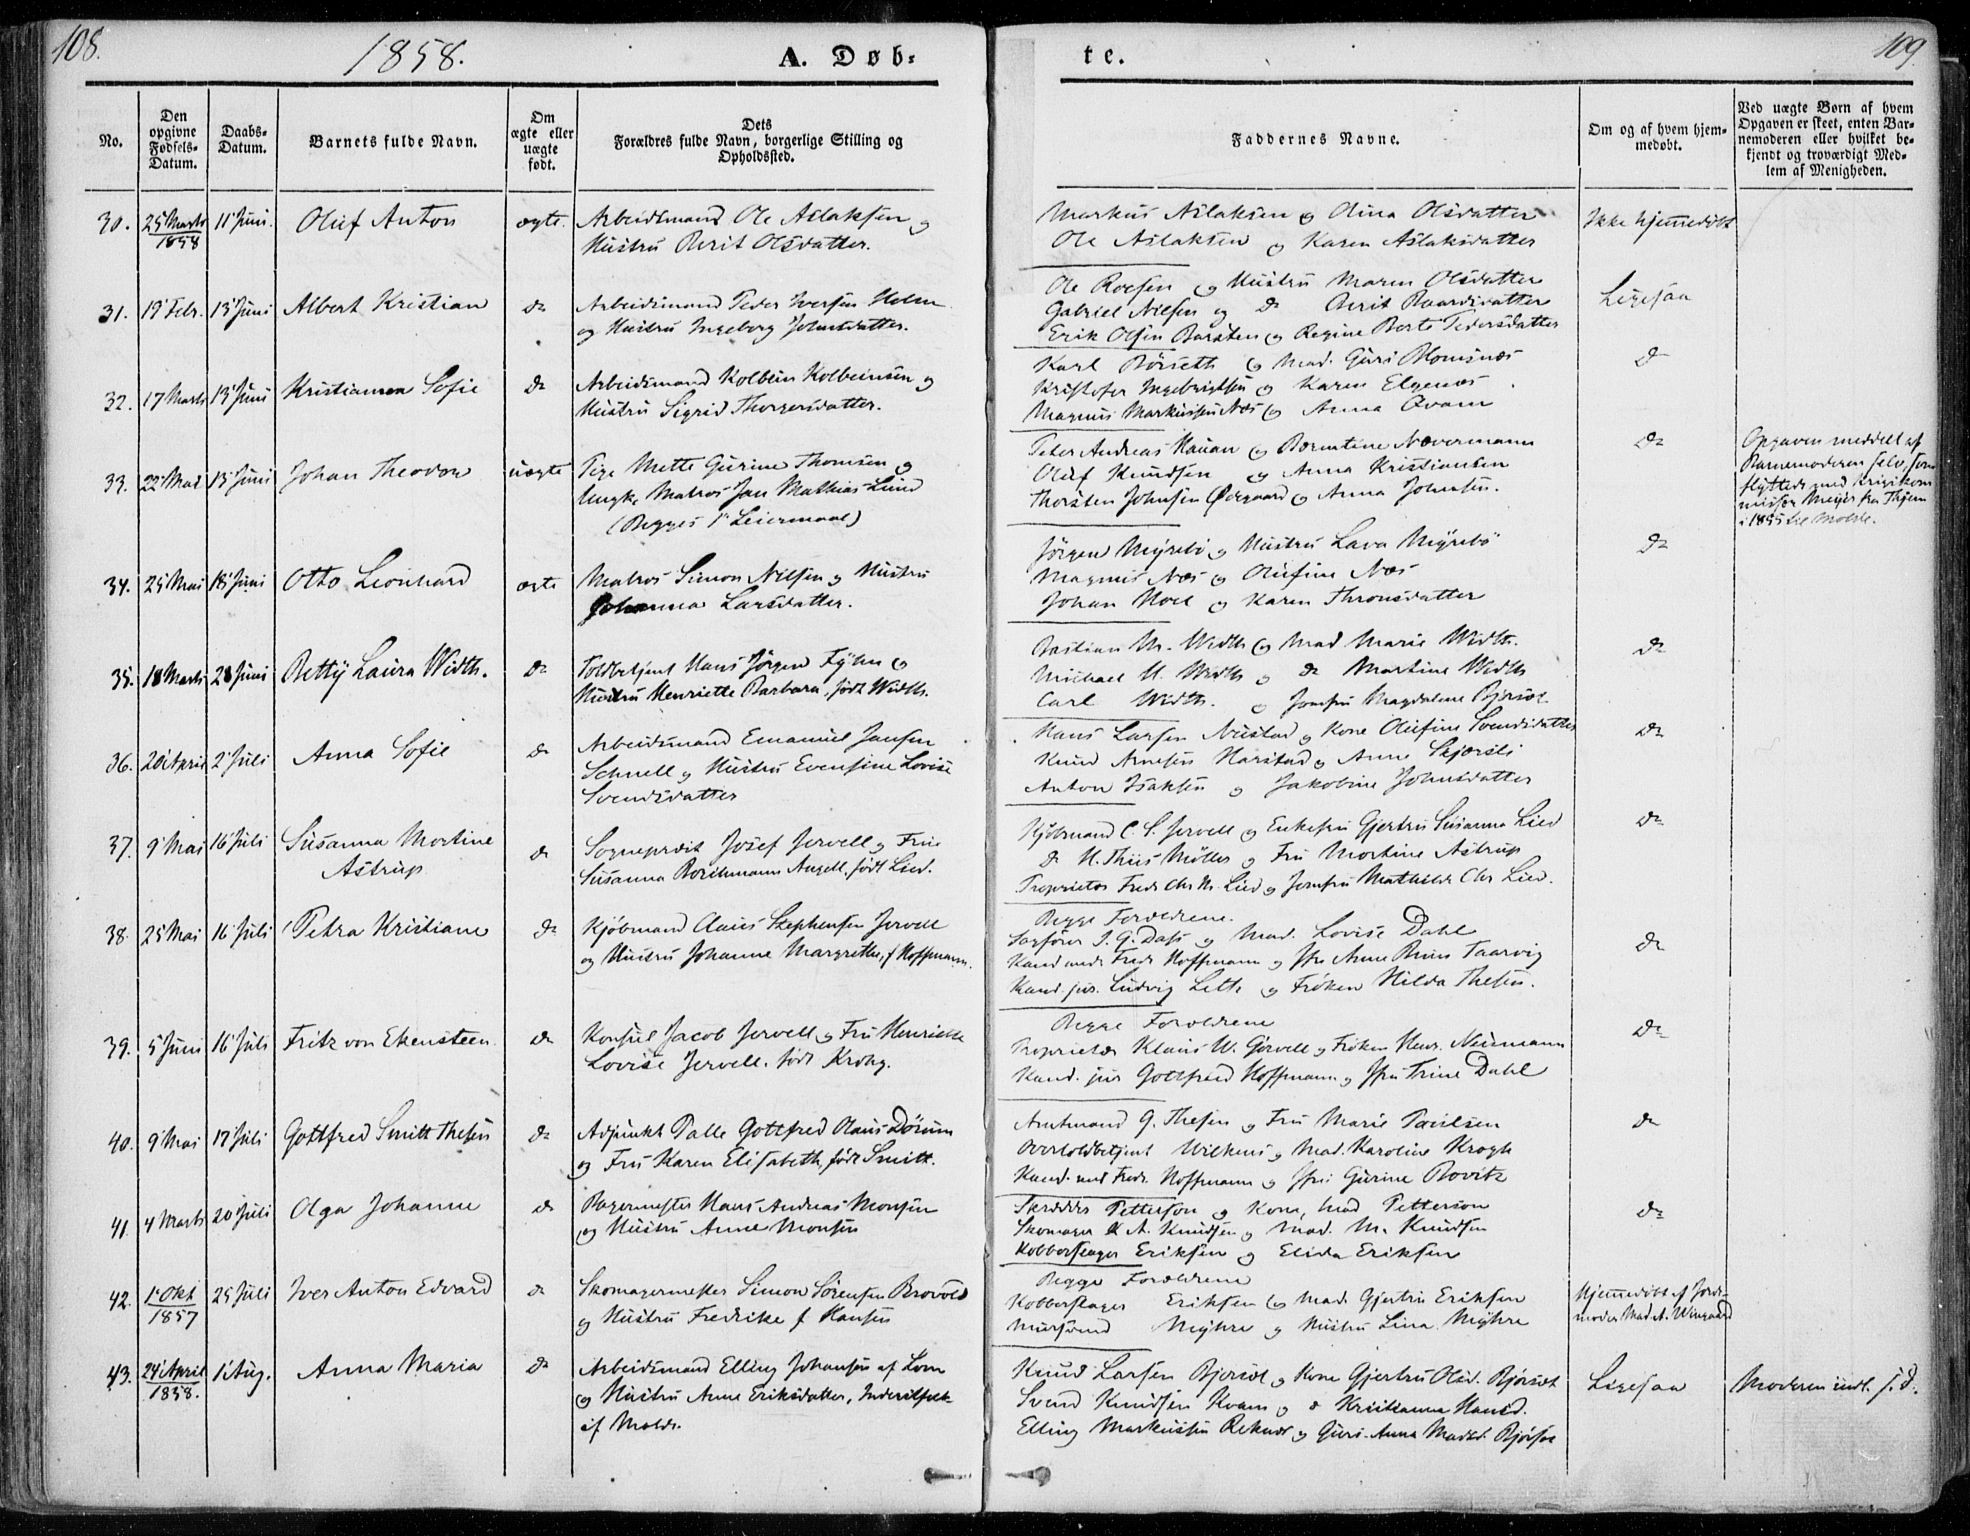 108.
1858.
A. Døb-
te.
109
No.
Den opgivne Fødsels-Datum.
Daabs-Datum.
Barnets fulde Navn.
Om ægte eller uægte født.
Dets Forældres fulde Navn, borgerlige Stilling og Opholdssted.
Faddernes Navne.
Om og af hvem hjemmedøbt.
Ved uægte Børn af hvem Opgaven er skeet, enten Barnemoderen eller hvilket bekjendt og troværdigt Medlem af Menigheden.
30. 25 Marts 1858 11 Juni. Oluf Anton ægte.
Arbeidsmand Ole Aslaksen og
Hustru Berit Olsdatter.
Markus Aslaksen og Olina Olsdatter
Ole Aslaksen og Karen Aslaksdatter
Ikke hjemmedöbt
31. 19 Febr. 13 Juni Albert Kristian do
Arbeidsmand Peder Iversen Holm
og Hustru Ingeborg Johnsdatter.
Ole Roesen og Hustru Maren Olsdatter
Gabriel Nilsen og do Berit Baardsdatter
Erik Olsen Barsten og Regine Berte Pedersdatter
Ligesaa
32. 17 Marts 13 Juni Kristianna Sofie do
Arbeidsmand Kolbein Kolbeinsen og
Hustru Sigrid Thorgersdatter.
Karl Börseth og Mad. Guri Blomsnæs
Kristofer Ingebrigtsen og Karen Elgenæs
Magnus Markussen Næs og Anna Qvam
do
33. 22 Mai 13 Juni Johan Theodor uægte
Pige Mette Gurine Thomsen og
Ungk. Matros Jan Mathias Lund
(Begges 1ste Leiermaal)
Peter Andreas Hauan og Berntine Nævermann
Oluf Knudsen og Anna Kristiansen
Thorsten Johnsen Ödegaard og Anna Johnsen.
do
Opgaven meddelt af
Barnemoderen selv, som
flyttede med Krigskom
missær Meyer fra Thjem
i 1855 til Molde.
34. 25 Mai 18 Juni Otto Leonhard ægte
Matros Simon Nilsen og Hustru
Johanna Larsdatter.
Jörgen Myrebö og Hustru Lava Myrebö
Magnus Næs og Olufine Næs
Johan Hoel og Karen Thronsdatter
do
35. 18 Marts 28 Juni Betty Laura Width. do
Toldbetjent Hans Jörgen Fyhn og
Hustru Henriette Barbara, födt Width.
Bastian M. Width og Mad Marie Width.
Michael H. Width og do Martine Width
Carl Width. og Jomfru Magdalene Bjorset
do
36. 20 April 2 Juli Anna Sofie do
Arbeidsmand Emanuel Jansen
Schnell og Hustru Evensine Lovise
Svendsdatter
Hans Larsen Nustad og Kone Olufine Svendsdatter
Knud Arnesen Harstad og Anne Skjorsli
Anton Isaksen og Jakobine Johnsdatter
do
37. 9 Mai 16 Juli Susanna Martine
Astrup do
Sogneprest Josef Jervell og Frue
Susanna Borthmann Angell, födt Lied.
Kjöbmand C. S. Jervell og Enkefru Gjertru Susanna Lied
do H. Thiis Möller og Fru Martine Astrup
Proprietær Fredr Chr M. Lied og Jomfru Mathilde Chr Lied.
do
38. 25 Mai 16 Juli Petra Kristiane do
Kjöbmand Claus Stephensen Jervell
og Hustru Johanne Margrethe, f Hoffmann.
Begge Foreldrene.
Sagförer J. G. Dass og Mad. Lovise Dahl
Kand med. Fredr Hoffmann og Jfr Anne Taarvig
Kand. jur. Ludvig Lette og Fröken Hilda Thesen.
do
39. 5 Juni 16 Juli Fritz von Ekensteen do
Konsul Jacob Jervell og Fru Henriette
Lovise Jervell. födt Krohg.
Begge Foreldrene
Proprietær Klaus W. Gjørvell og Fröken Henr. Neumann
Kand. jur Gottfred Hoffmann og Jfru Trine Dahl
do
40. 9 Mai 17 Juli Gottfred Smitt Thesen do
Adjunkt Palle Gottfred Olaus Dörum
og Fru Karen Elisabeth, födt Smitt.
Amtmand G. Thesen og Fru Marie Paulsen
Overtoldbetjent Wilkens og Mad. Karoline Krogh
Kand. med Fredr. Hoffmann og Jfru Gurine Rovitz
do
41. 4 Marts 20 Juli Olga Johanne do
Bagermester Hans Andreas Monsen
og Hustru Anne Monsen
Skredder Petterson og Kone, Mad Petterson
Skomager A. Knudsen og Mad. M. Knudsen
Kobberslager Eriksen og Elida Eriksen
do
42. 1 Okt 1857 25 Juli Iver Anton Edvard do
Skomagermester Simon Sörensen Brovold
og Hustru Fredrike f Hansen
Begge Foreldrene
Kobberslager Eriksen og Mad. Gjertru Eriksen
Mursvend Myhre og Hustru Lina Myhre
Hjemmedöbt af Jorde-
moder Mad A. Wingaard
43. 24 April 1858. 1 Aug. Anna Maria do
Arbeidsmand Elling Johansen af Lom
og Hustru Anne Eriksdatter,
af Molde.
Knud Larsen Bjorset og Kone Gjertru Olsd. Bjorset
Svend Knudsen Kvam og do Kristianna Hansd.
Elling Markussen Reknes og Guri Anna Madsd. Bjorset
Ligesaa
Moderen indl. s. d.